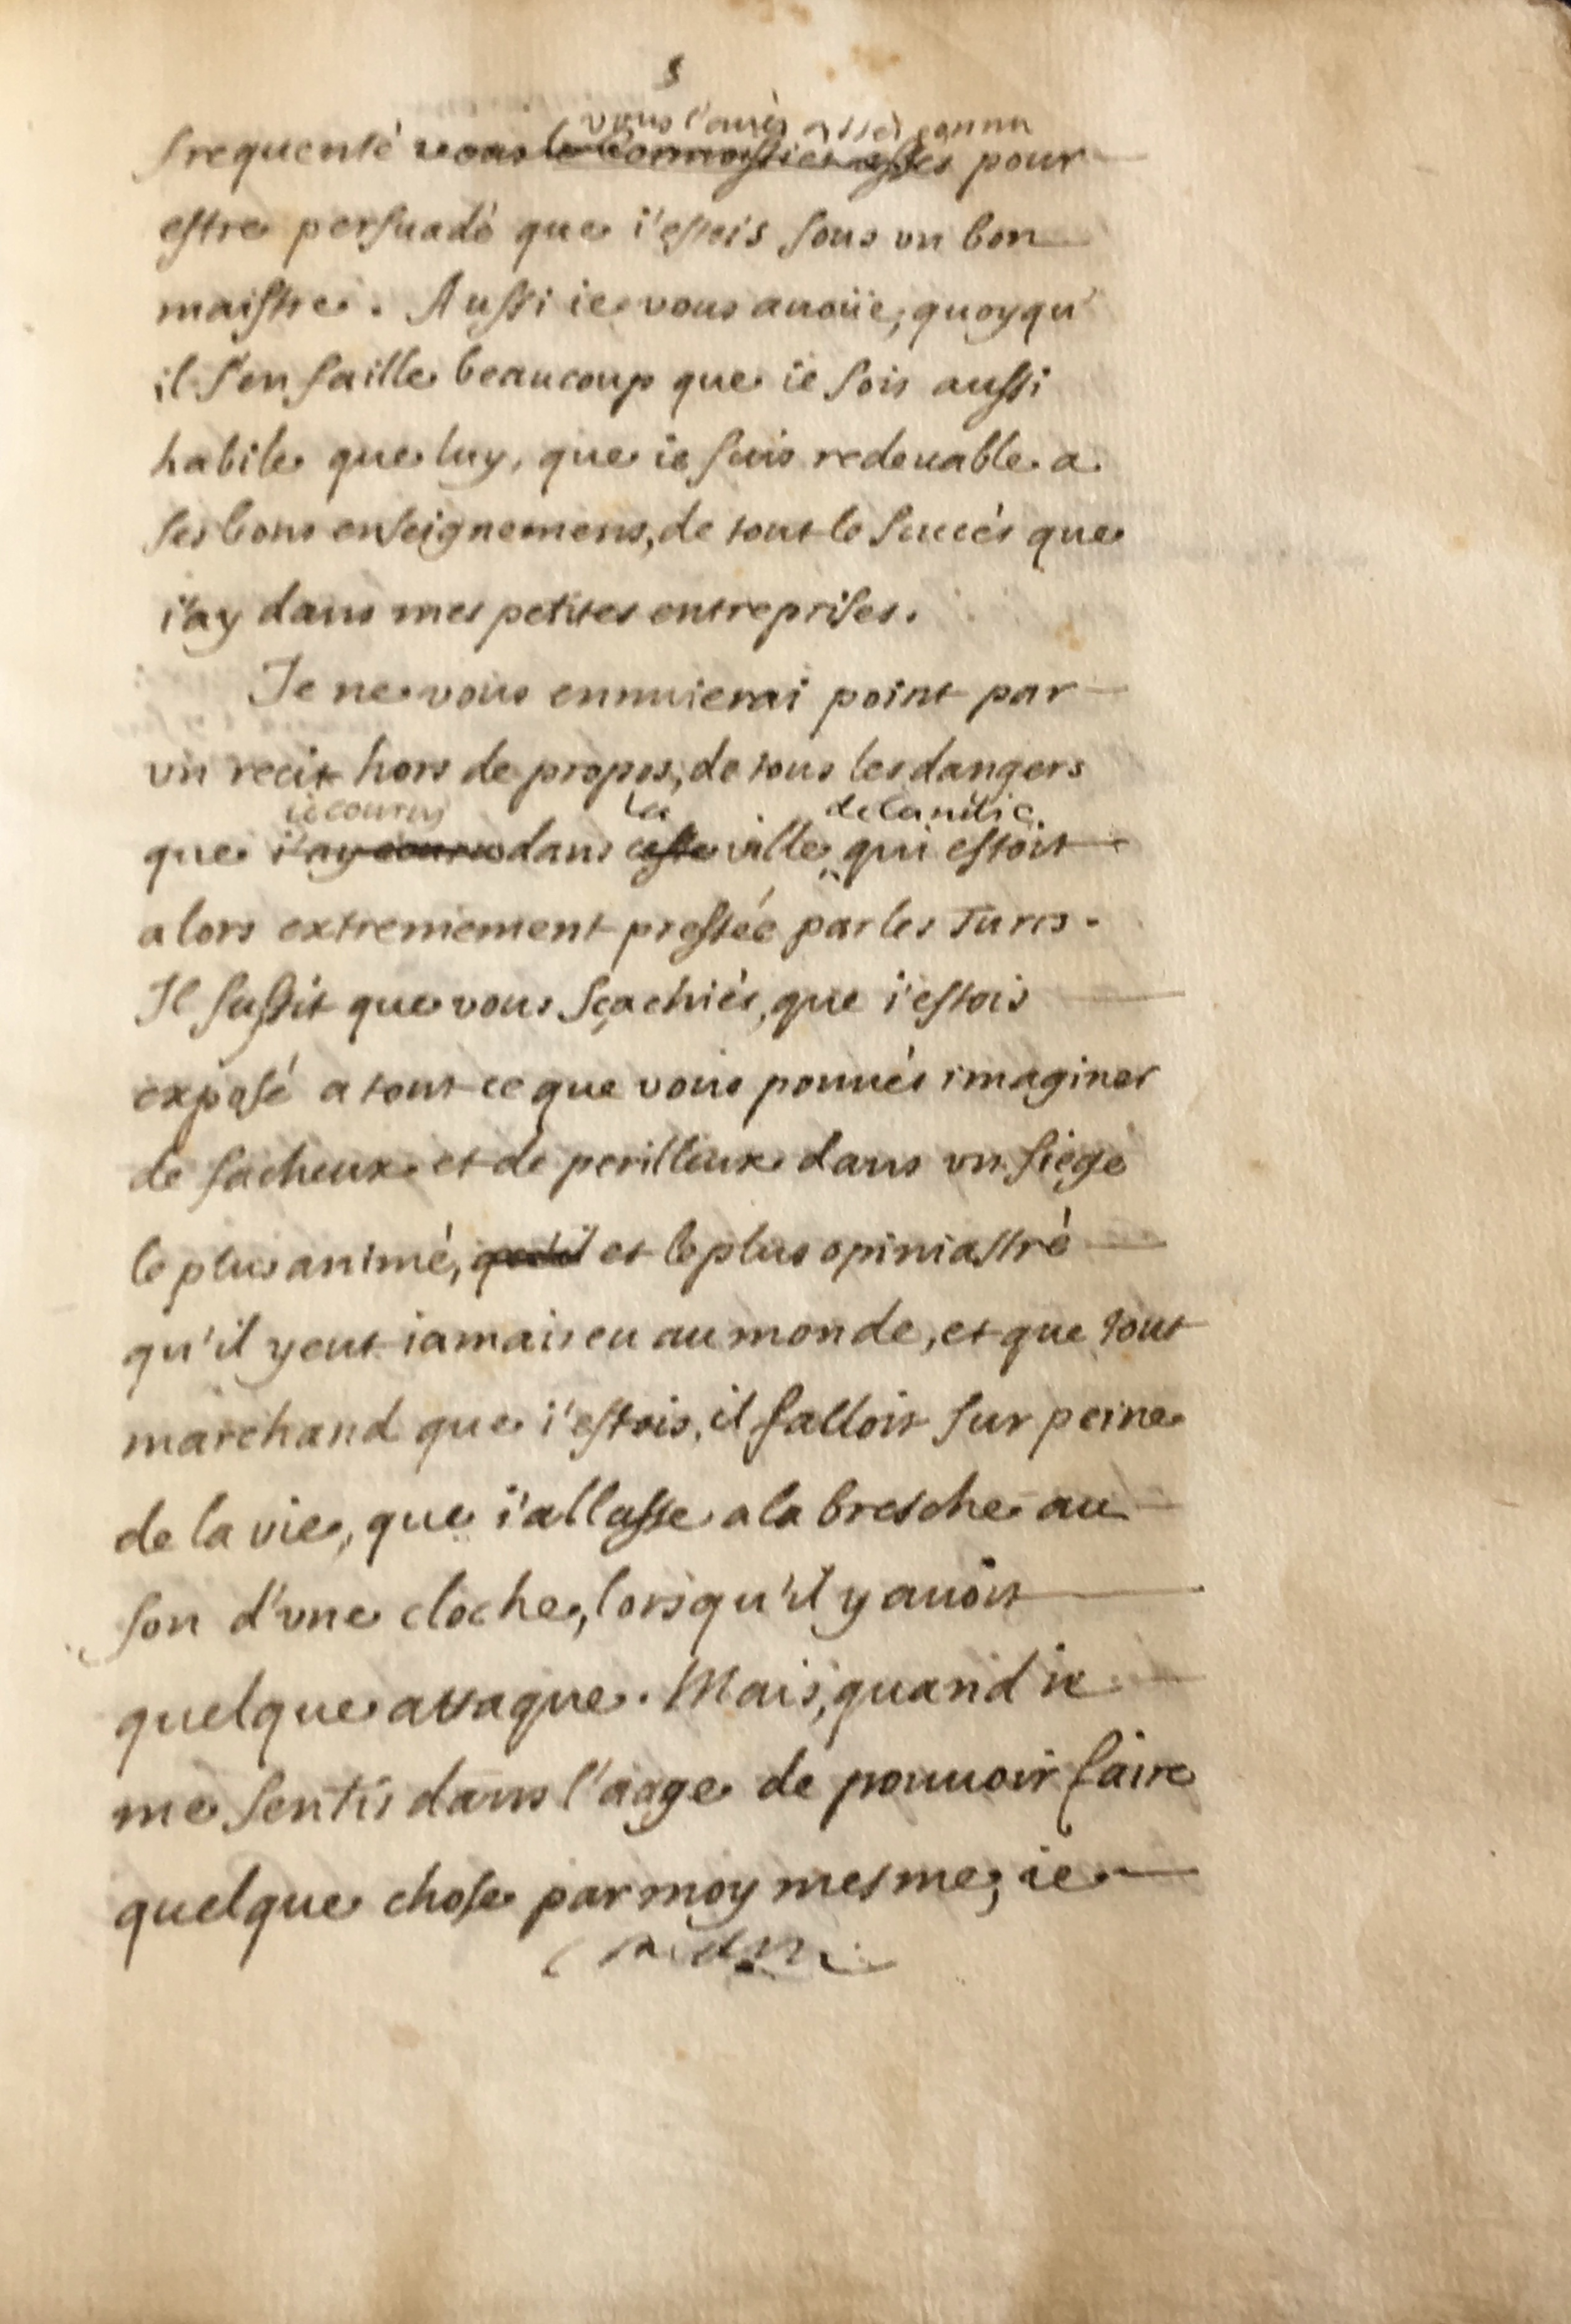 5
vous l'auès assés connu
frequenté vous le connoissiés assés pour
estre persuadé que i'estois sous vn bon
maistre. Aussi ie vous auoüe, quoyqu'
il s'en faille beaucoup que ie sois aussi
habile que luy, que ie suis redeuable a
ses bons enseignemens, de tout le succés que
i'ay dans mes petites entreprises.
Je ne vous ennuierai point par
vn recit hors de propos, de tous les dangers
ie courus la de Candie
que i'ay courus dans cette ville, qui estoit
alors extremement pressée par les Turcs.
Il suffit que vous sçachiés, que i'estois
exposé a tout ce que vous pouués imaginer
de facheux et de perilleux dans vn siege
le plus animé, et le plus opiniastré
qu'il y eut iamais eu au monde, et que tout
marchand que i'estois, il falloit sur peine
de la vie, que i'allasse a la bresche au
son d'vne cloche, lorsqu'il y auoit
quelque attaque. Mais, quand ie
me sentis dans l'aage de pouuoir faire
quelque chose par moy mesme, ie